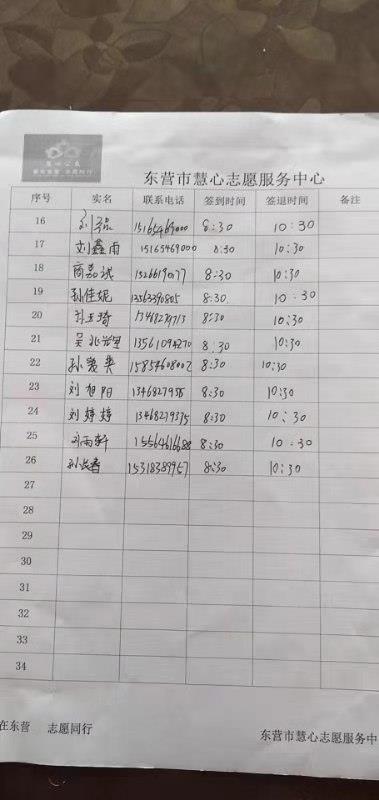 慧心公益
东营市慧心志愿服务中心
序号 实名 联系电话 签到时间 签退时间 备注
16 刘强 15165469000 8:30 10:30
17 刘鑫雨 15165469000 8:30 10:30
18 商嘉诚 8:30 10:30
19 孙佳妮 13563390805 8:30. 10:30
20 孙玉琦 13468274713 8:30 10:30
21 13561094270 8:30 10:30
22 孙爱英 15854608002 8:30 10:30
23 刘旭阳 8:30 10:30
24 刘婷婷 13468279375 8:30 10:30
25 刘雨轩 15564616688 8:30 10:30
26 15318389957 8:30 10:30
27
28
29
30
31
32
33
34
在东营 志愿同行
东营市慧心志愿服务中